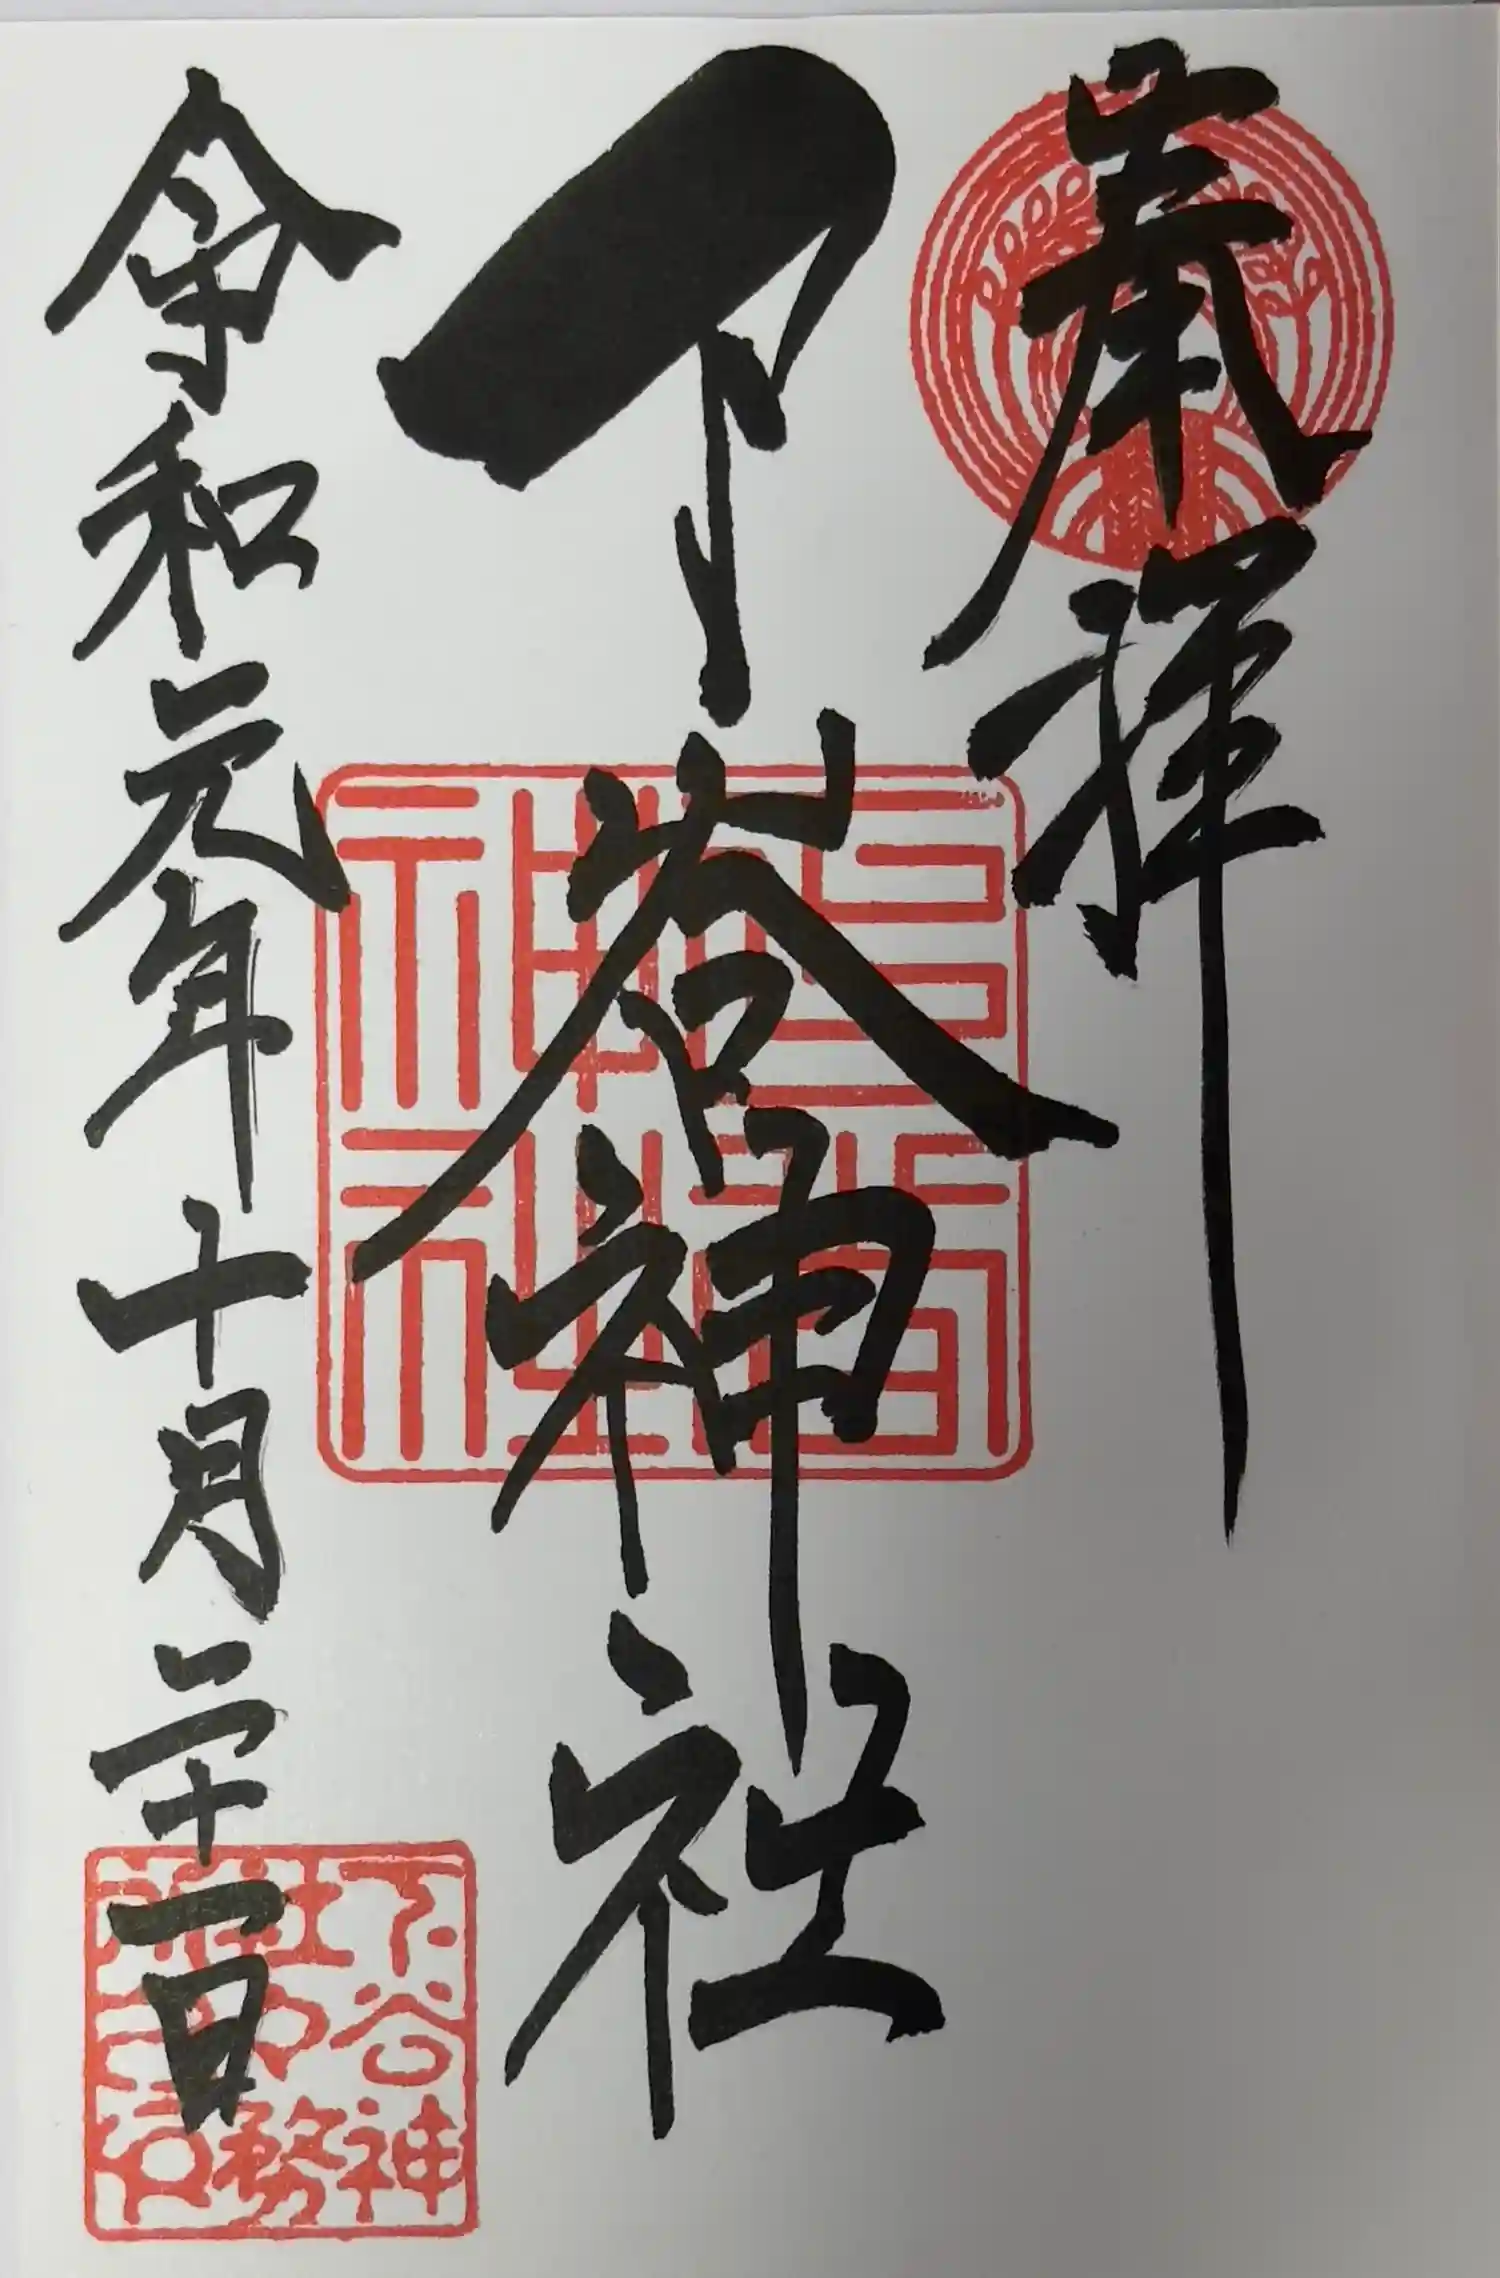 奉拝
下谷神社
令和元年十月二十一日
下谷神
社
務